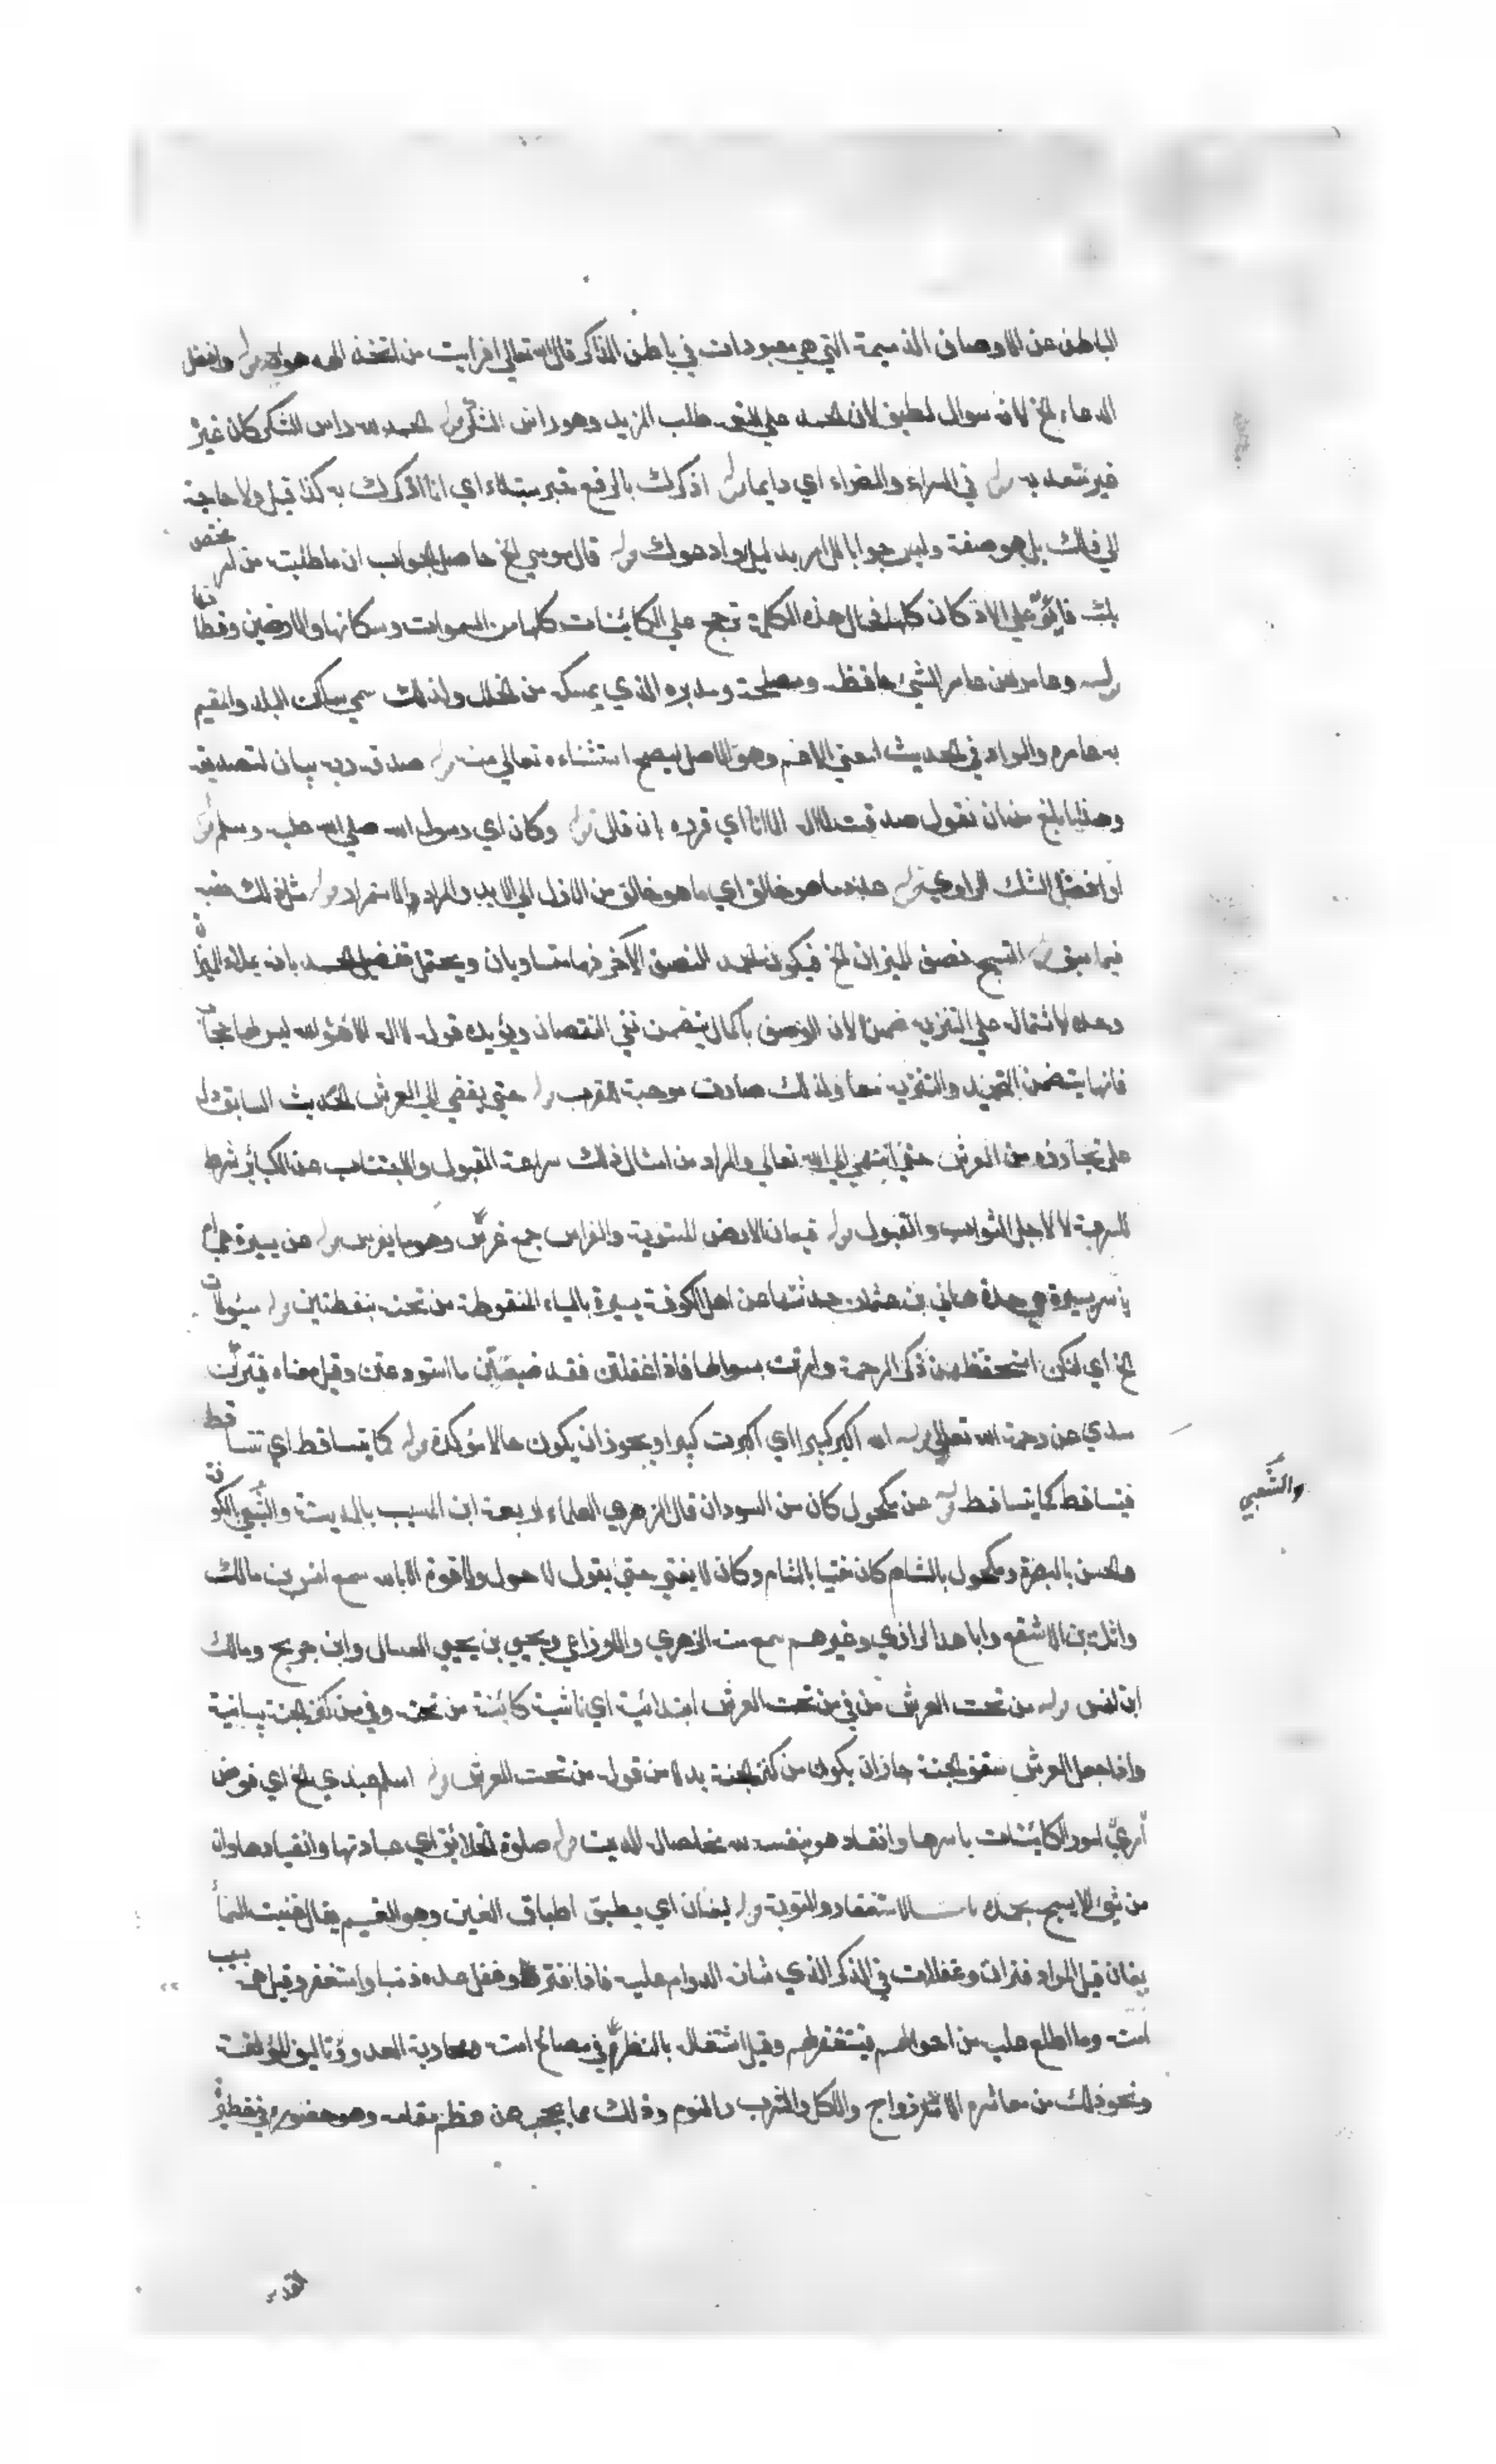 الباطن عن الاوصاف الذميمة التي هي معبودات في باطن الذاكر قال الله تعالي افرايت من اتخذ الهه هواه قوله وافضل
الدعاء الخ لانه سوال لطيف لان الحمد علي النعم طلب المزيد وهو راس الشكر قوله الحمد لله راس الشكر كان غير
غير معتد به قوله في السراء والضراء اي دايما قوله اذكرك بالرفع خبر مبتداء اي انا اذكرك به كذا قيل ولا حاجة
الي ذلك بل هو صفة وليس جوابا للامر بدليل وادعوك قوله قال موسي الخ حاصل الجواب ان ما طلبت من امر مختص
بك فايق علي الاذكار كلها لان هذه الكلمة ترجح علي الكائنات كلها من السموات وسكانها والارضين وقطانها
قوله وعامرهن عامر الشيء حافظه ومصلحه ومدبره الذي يمسكه من الخلل ولذلك سمي ساكن البلد والمقيم
به عامره والمراد في الحديث المعني الاعم وهو الاصل ليصح استثناءه تعالي منه قوله صدقه ربه بيان لتصديقه
وهذا ابلغ من ان نقول صدقت لا اله الا انا اي قرره بان قال قوله وكان اي رسول الله صلي الله عليه وسلم قوله
او افضل الشك الراوي قوله عدد ما هو خالق اي ما هو خالق من الازل الي الابد والمراد الاستمرار قوله مثل ذلك نصبه
فيما سبق قوله التسبيح نصف الميزان الخ فيكون الحمد النصف الآخر فهما متساويان ويحتمل تفضيل الحمد بانه يملاء الميزان
وحده لاشتماله علي التنزيه ضمنا لان الوصف بالكمال يتضمن نفي النقصان ويؤيده قوله لا اله الا هو الله ليس لها حجاب
فانها يتضمن التحميد والتنزيه معا ولذلك صارت موجبة القرب قوله حتي يفضي الي العرش الحديث السابق دل
علي تجاوزه من العرش حتي انتهي الي الله تعالي والمراد من امثال ذلك سرعة القبول والاجتناب عن الكبائر شرط
للسرعة لا لاجل الثواب والقبول قوله قيعان الارض المستوية والغراس جمع غرس وهو ما يغرس قوله عن يسيرة
ياسر يسيرة هي جدة هاني بن عثمان حديثها عن اهل الكوفة يسيرة بالياء المنقوطة من تحت بنقطتين قوله مسئولات
الخ اي لكن استحفظهن ذكر الرحمة وامرت بسوالها فاذا غفلتن فقد ضيعتن ما استودعتن وقيل معناه فتتركن
سدي عن رحمة الله تعالي قوله الله اكبر كبيرا اي اكبرت كبيرا ويجوز ان يكون حالا مؤكدة قوله كما يتساقط اي تتساقط
فيتساقط كما يتساقط قوله عن مكحول كان من السودان قال الزهري العلماء اربعة ابن المسيب بالمدينة والشعبي بالكوفة
والحسن بالبصرة ومكحول بالشام كان مفتيا بالشام وكان لا يفتي حتي يقول لا حول ولا قوة الا بالله سمع انس بن مالك
واثلة بن الاسقع وابا هند الرازي وغيرهم سمع منه الزهري والاوزاعي ويحيي بن يحيي الغساني وابن جريج ومالك
ابن انس قوله من تحت العرش من في من تحت العرش ابتدائية اي ناشية كائنة من تحته وفي من كنز الجنة بيانية
واذا جعل العرش سقف الجنة جاز ان يكون من كنز الجنة بدلا من قوله من تحت العرش قوله اسلم عبدي الخ اي فوض
امر امور الكائنات باسرها وانقاد هو بنفسه لله مخلصا له الدين قوله صلوة الخلائق اي عبادتها وانقيادها وان
من شيء الا يسبح بحمده باب الاستغفار والتوبة قوله ليغان اي يطبق اطباق الغين وهو الغيم يقال غينت السماء
يغان قيل المراد فترات وغفلات في الذكر الذي شانه الدوام عليه فاذا فتر وغفل عده ذنبا واستغفر وقيل همه بسبب
امته وما اطلع عليه من احوالهم فيستغفر لهم وقيل اشتغاله بالنظر في مصالح امته ومحاربة العدو وتاليف المؤلفة
ونحو ذلك من معاشرة الازواج والاكل والشرب والنوم وذلك مما يحجبه عن عظم مقامه وهو حضوره في حظيرة
والشعبي
القدس